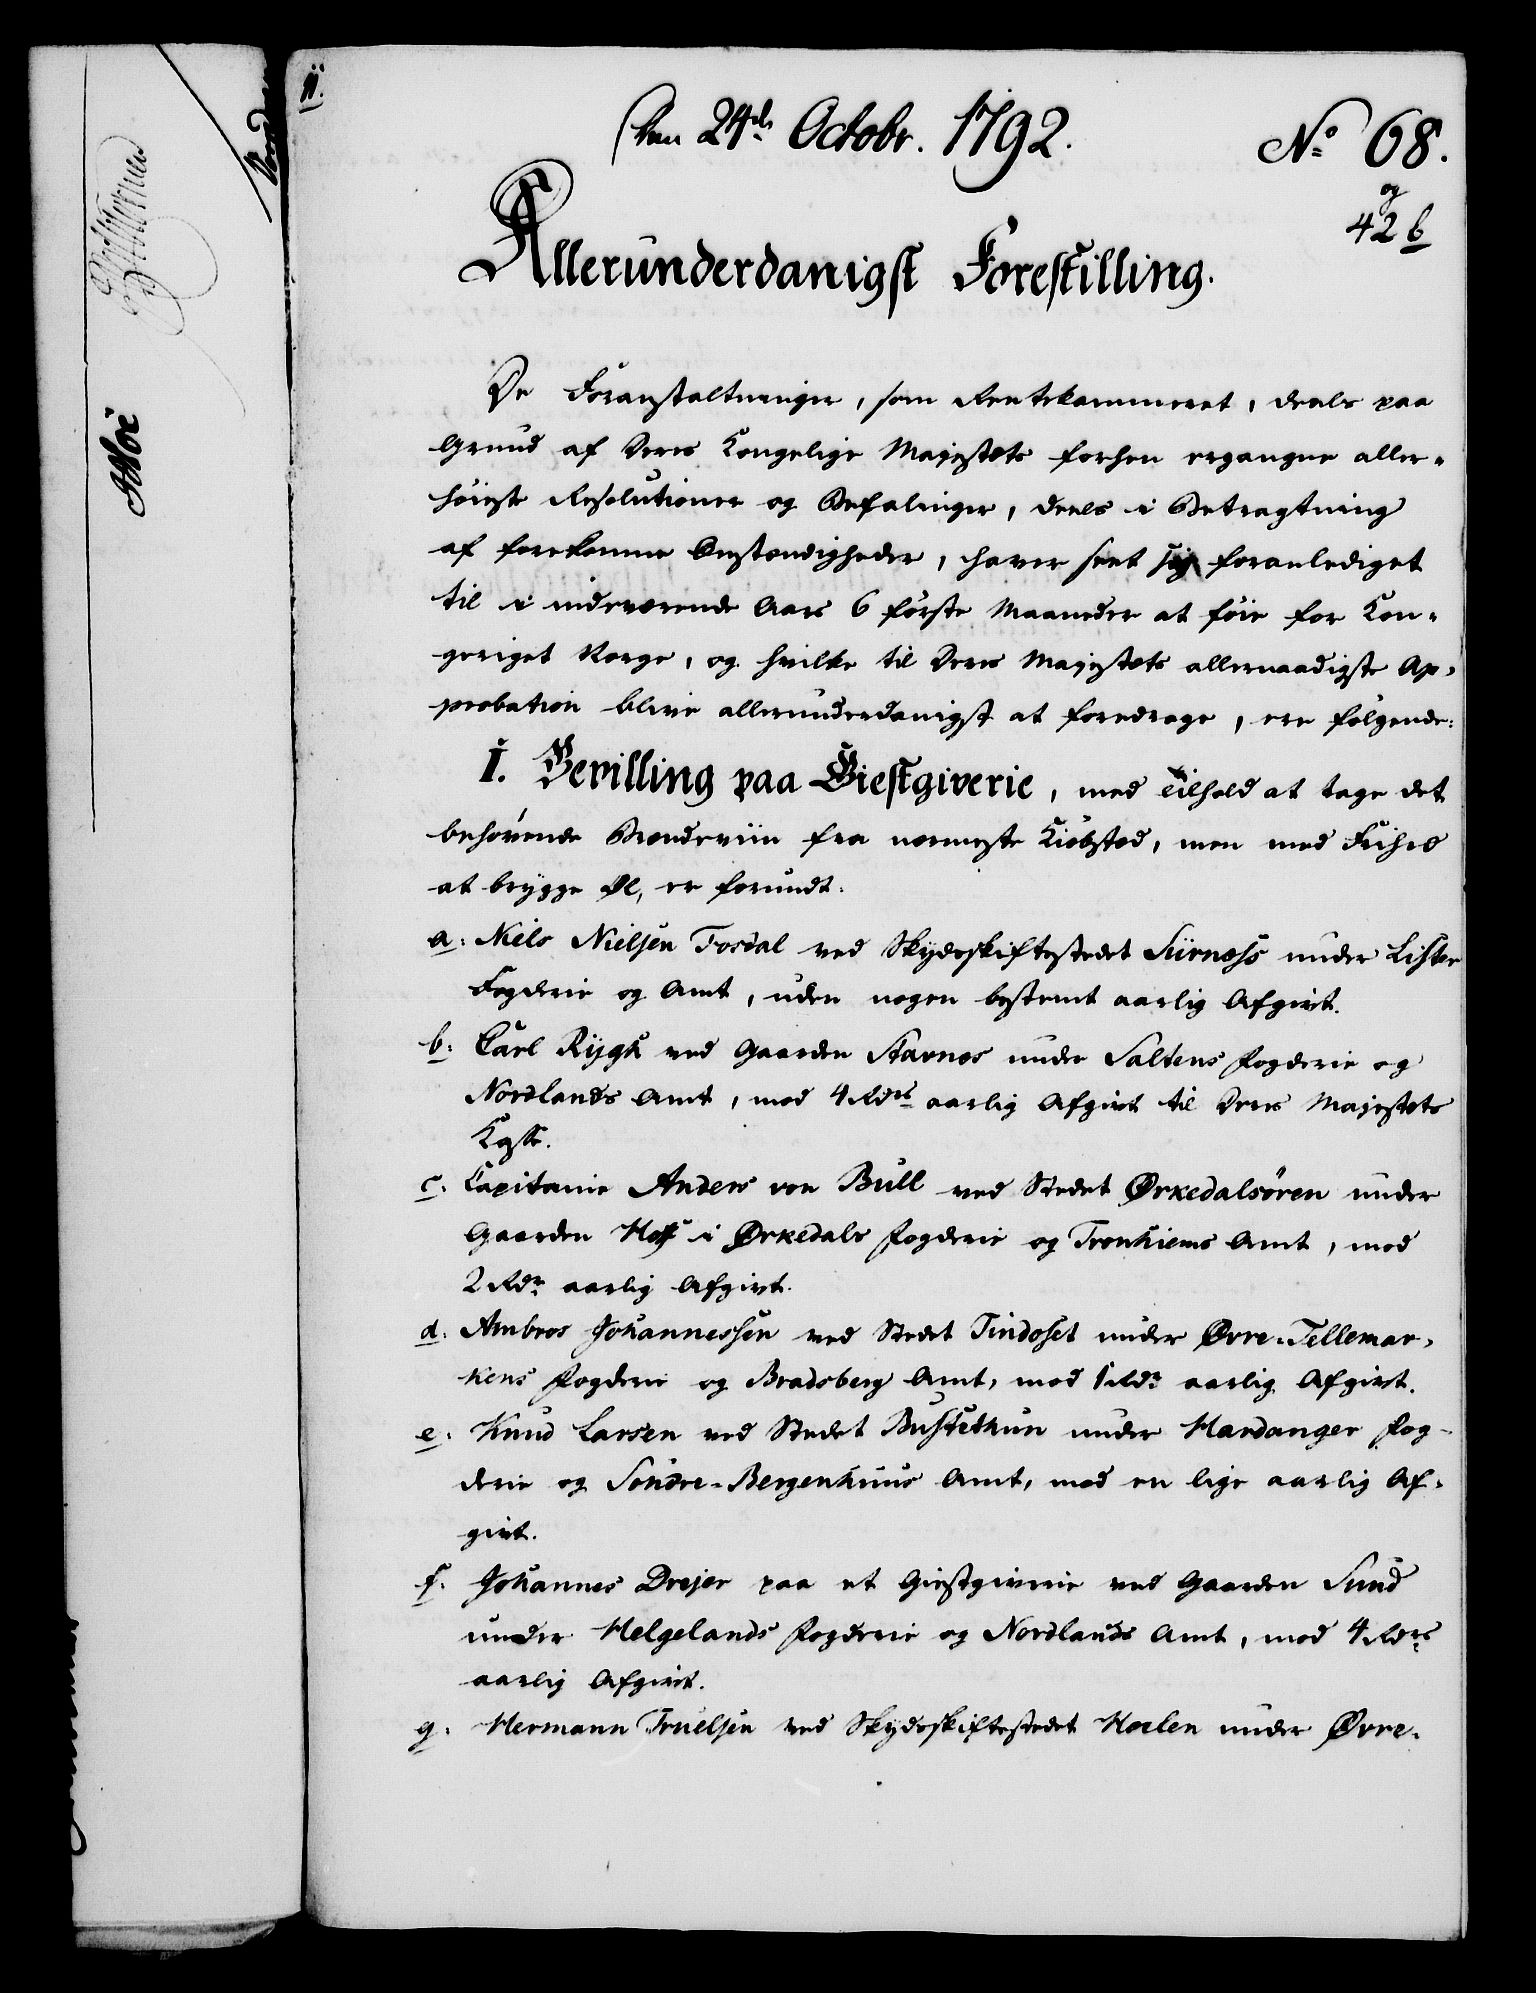 Den 24de Octobr. 1792.
No 68.
og
42 b
Allerunderdanigst Forestilling.
De Foranstaltninger, som Rentekammeret, deels paa
Grund af Deres Kongelige Majestæts forhen ergangne aller-
høieste Resolutioner og Befalinger, deels i Betragtning
af forekomne Omstændigheder, haver seet sig foranlediget
til i indeværende Aars 6 første Maaneder at føie for Kon-
geriget Norge, og hvilke til Deres Majestæts allernaadigste Ap-
probation blive allerunderdanigst at foredrage, ere følgende:
I. Bevilling paa Giestgiverie, med Tilhold at tage det
behøvende Brændeviin fra nærmeste Kiøbstæd, men med Frihed
at brygge Øl, er forundt:
a: Niels Nielsen Fosdal ved Skydsskiftestedet Siirnæss under Lister
Fogderie og Amt, uden nogen bestemt aarlig Afgivt.
b: Carl Rijgh ved Gaarden Stavnes under Saltens Fogderie og
Nordlands Amt, mod 4 Rdrs aarlig Afgivt til Deres Majestæts
Kasse.
c. Capitaine Anders von Bull ved Stedet Ørkedalsøren under
Gaarden Hoff i Ørkedals Fogderie og Tronhiems Amt, mod
2 Rdr aarlig Afgivt.
d. Ambros Johannessen ved Stedet Tindoset under Øvre-Tellemar-
kens Fogderie og Bradsberg Amt, mod 1 Rdr aarlig Afgivt.
e. Knud Larsen ved Stedet Bustethun under Hardanger Fog-
derie og Søndre-Bergenhuus Amt, mod en lige aarlig Af-
givt.
f. Johannes Drejer paa et Giestgiverie ved Gaarden Sund
under Helgelands Fogderie og Nordlands Amt, mod 4 Rdrs
aarlig Afgivt.
g. Hermann Truelsen ved Skydsskiftestedet Horlen under Øvre-